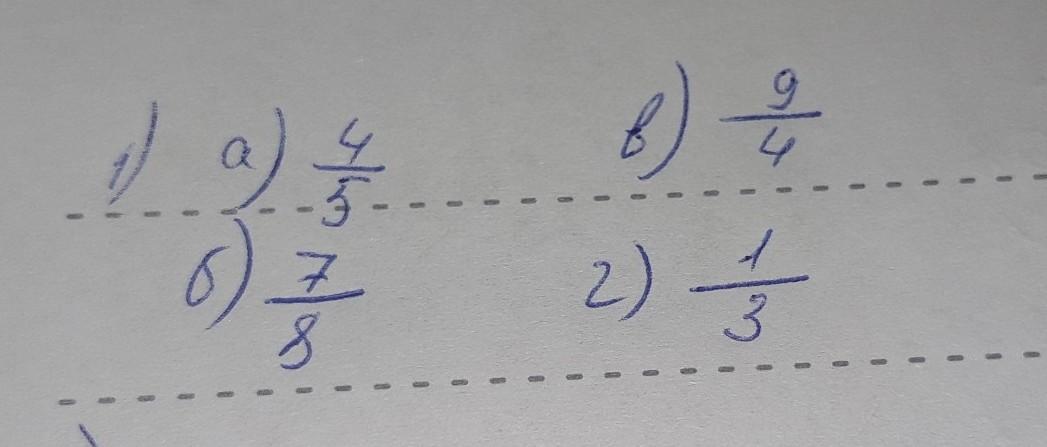 1) а) 4/5 в) 9/4
б) 7/8 г) 1/3